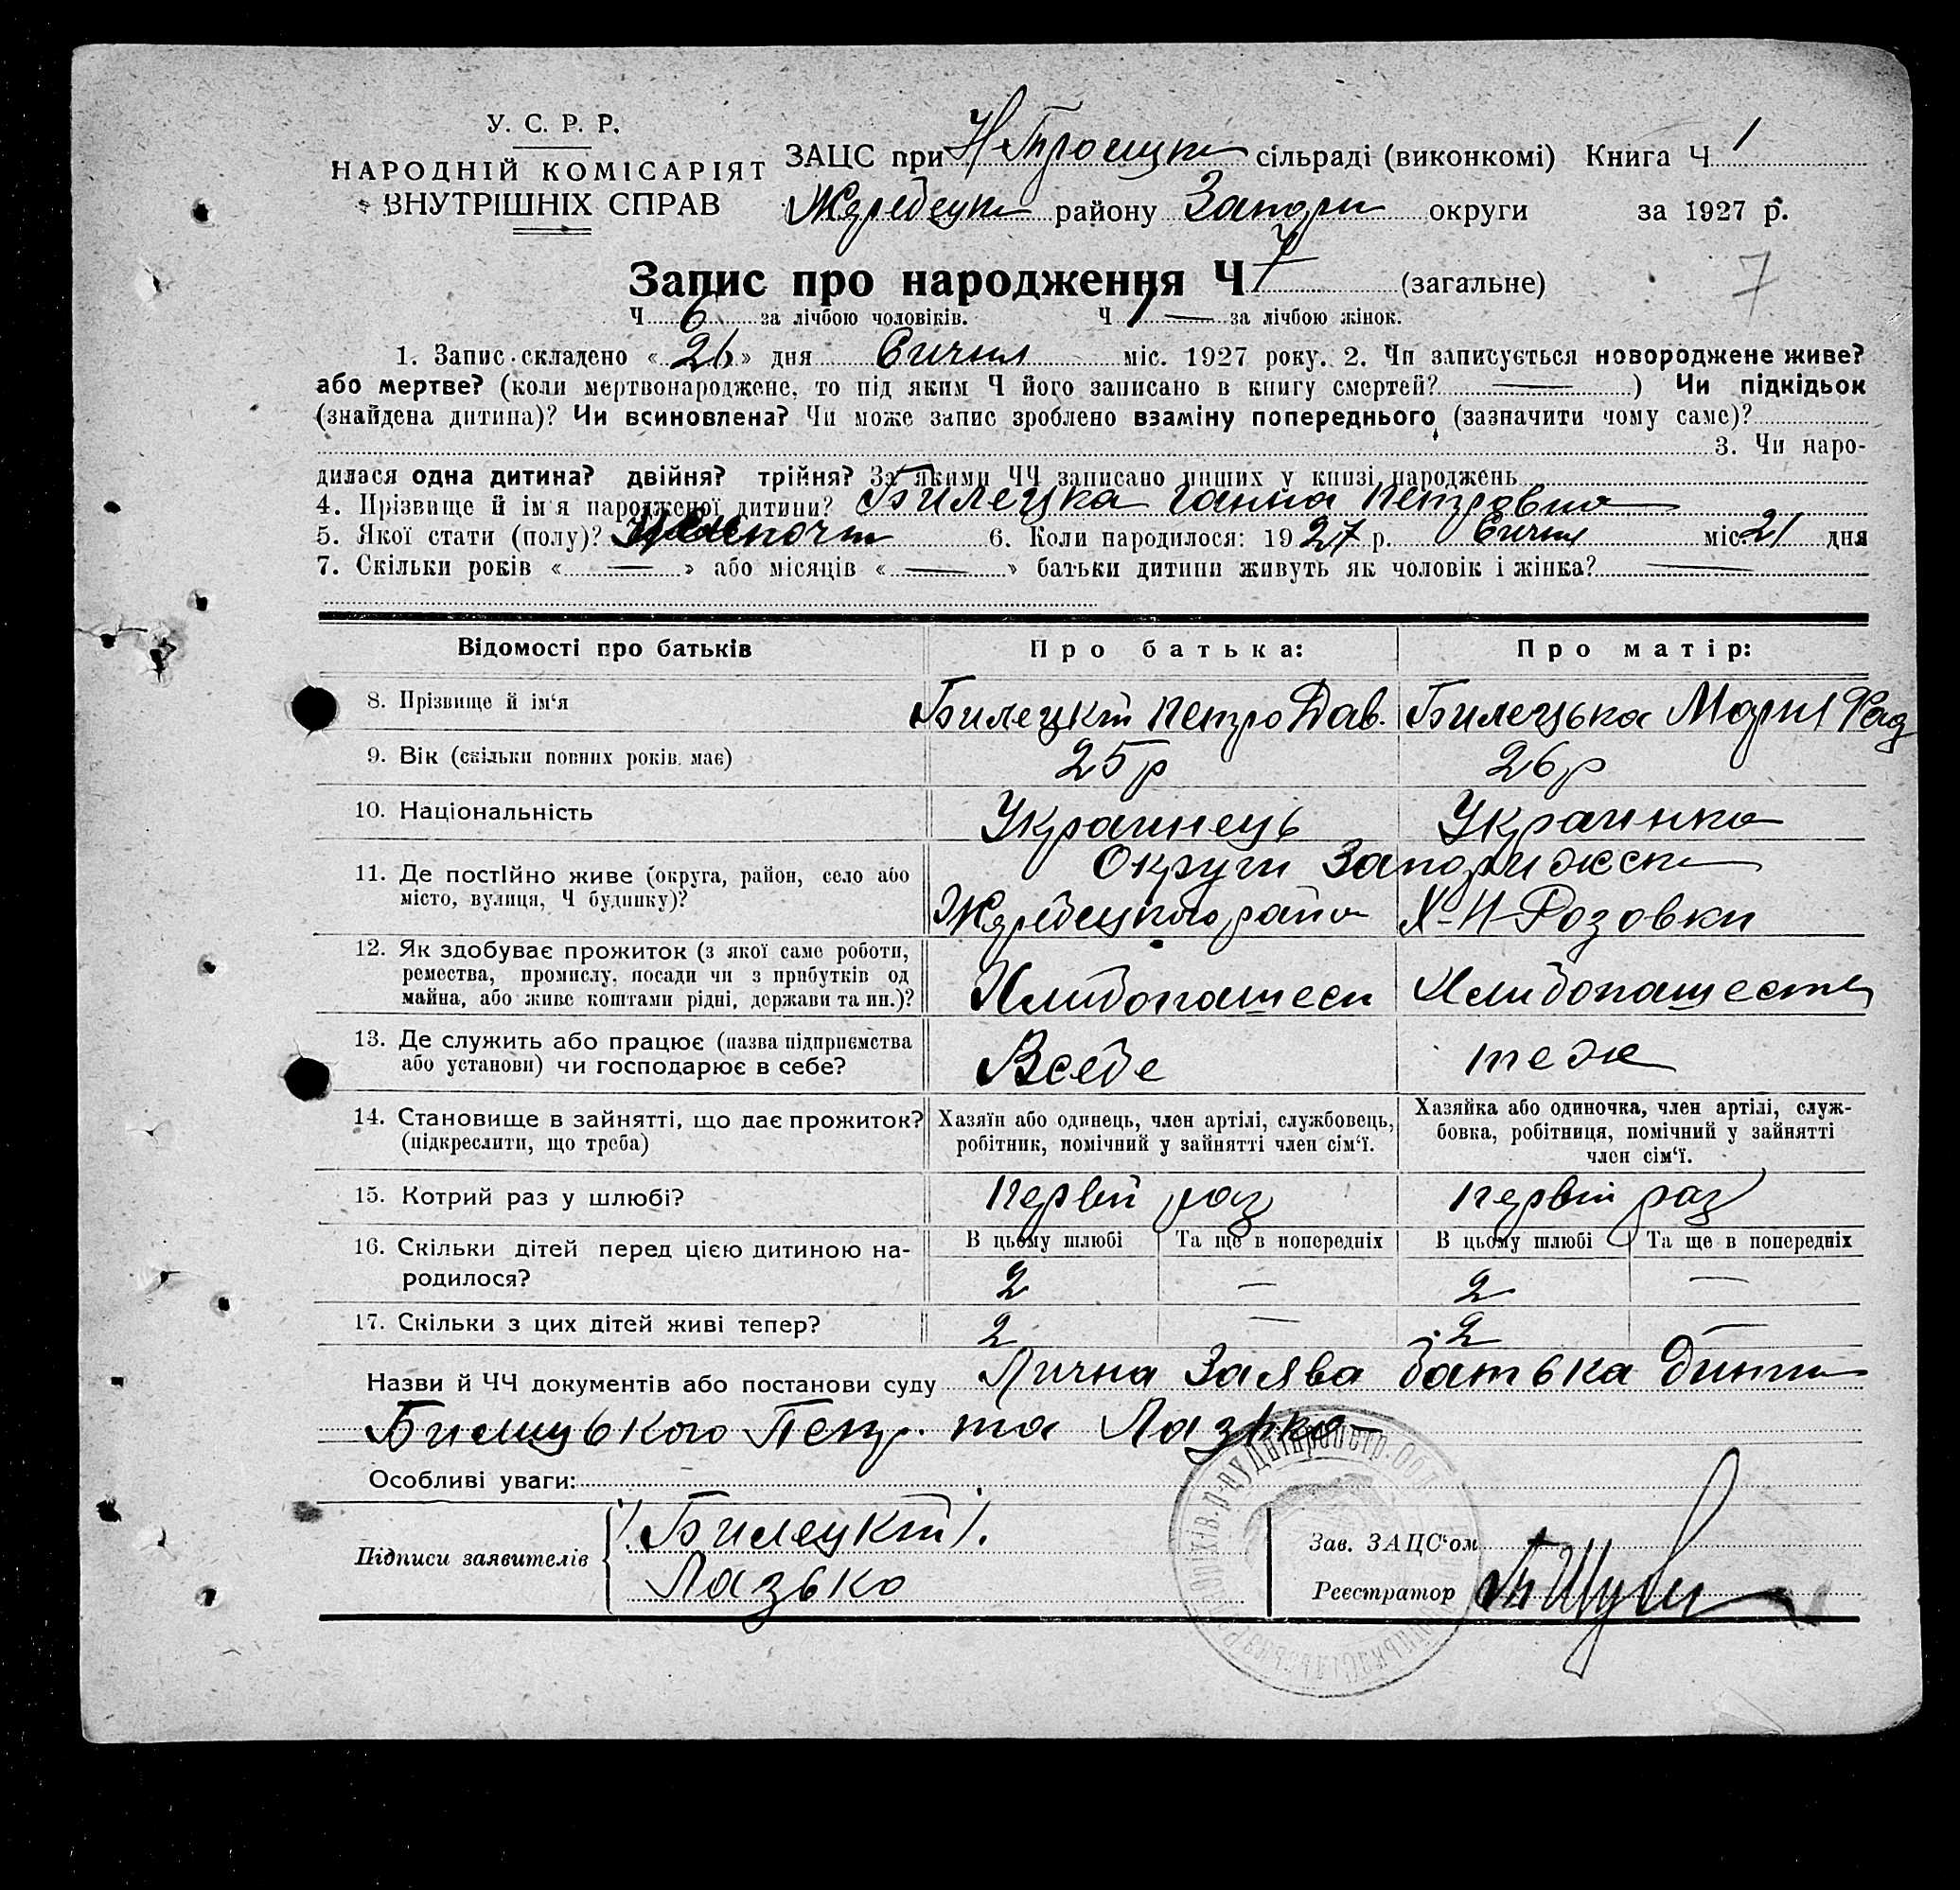 У. С. Р. Р.
НАРОДНІЙ КОМІСАРІЯТ
ВНУТРІШНІХ СПРАВ
ЗАЦС при Н-Троицки сільраді (виконкомі) Книга Ч 1
Жеребецки району Запори округи за 1927 р.
Запис про народження Ч 7 (загальне)
7
Ч 6 за лічбою чоловіків. Ч 1 — за лічбою жінок.
1. Запис складено « 26 » дня Сичня міс. 1927 року. 2. Чи записується новороджене живе?
або мертве? (коли мертвонароджене, то під яким Ч його записано в книгу смертей? — ) Чи підкідьок
(знайдена дитина)? Чи всиновлена? Чи може запис зроблено взаміну попереднього (зазначити чому саме)?
3. Чи наро-
дилася одна дитина? двійня? трійня? За якими ЧЧ записано инших у книзі народжень
4. Прізвище й ім'я народженої дитини? Билецка Ганна Петровна
5. Якої стати (полу)? 6. Коли народилося: 1927 р. Сичня міс. 21 дня
7. Скільки років « — » або місяців « — » батьки дитини живуть як чоловік і жінка? —
Відомості про батьків Про батька: Про матір:
8. Прізвище й ім'я Билецкій Петро Дав. Билецька Мария Фед
9. Вік (скільки повних років має) 25 р 26 р
10. Національність Украинець Украинка
Округи Запорижск
11. Де постІйно живе (округа, район, село або
місто, вулиця, Ч будинку)? Жеребецкого райо Х-Н-Розовки
12. Як здобуває прожиток (з якої саме роботи,
ремества, промислу, посади чи з прибутків од
майна, або живе коштами рідні, держави та ин.)? Хлибопашеси Хлибопашеств
13. Де служить або працює (назва підприємства
або установи) чи господарює в себе? Всебе теж
14. Становище в зайнятті, що дає прожиток?
(підкреслити, що треба)
Хазяїн або одинець, член артілі, службовець,
робітник, помічний у зайнятті член сім'ї.
Хазяйка або одиночка, член артілі, служ-
бовка, робітниця, помічний у зайнятті
член сім'ї.
15. Котрий раз у шлюбі? Первій раз Первій раз
16. Скільки дітей перед цією дитиною на-
родилося?
В цьому шлюбі Та ще в попередніх В цьому шлюбі Та ще в попередніх
2 — 2 —
17. Скільки з цих дітей живі тепер? 2 — 2 —
Назви й ЧЧ документів або постанови суду Лична Заява батька Дити
Билицького Петр. та Лазько
Особливі уваги:
Підписи заявителів Билецкій
Лазько
Зав. ЗАЦС'ом
Реєстратор